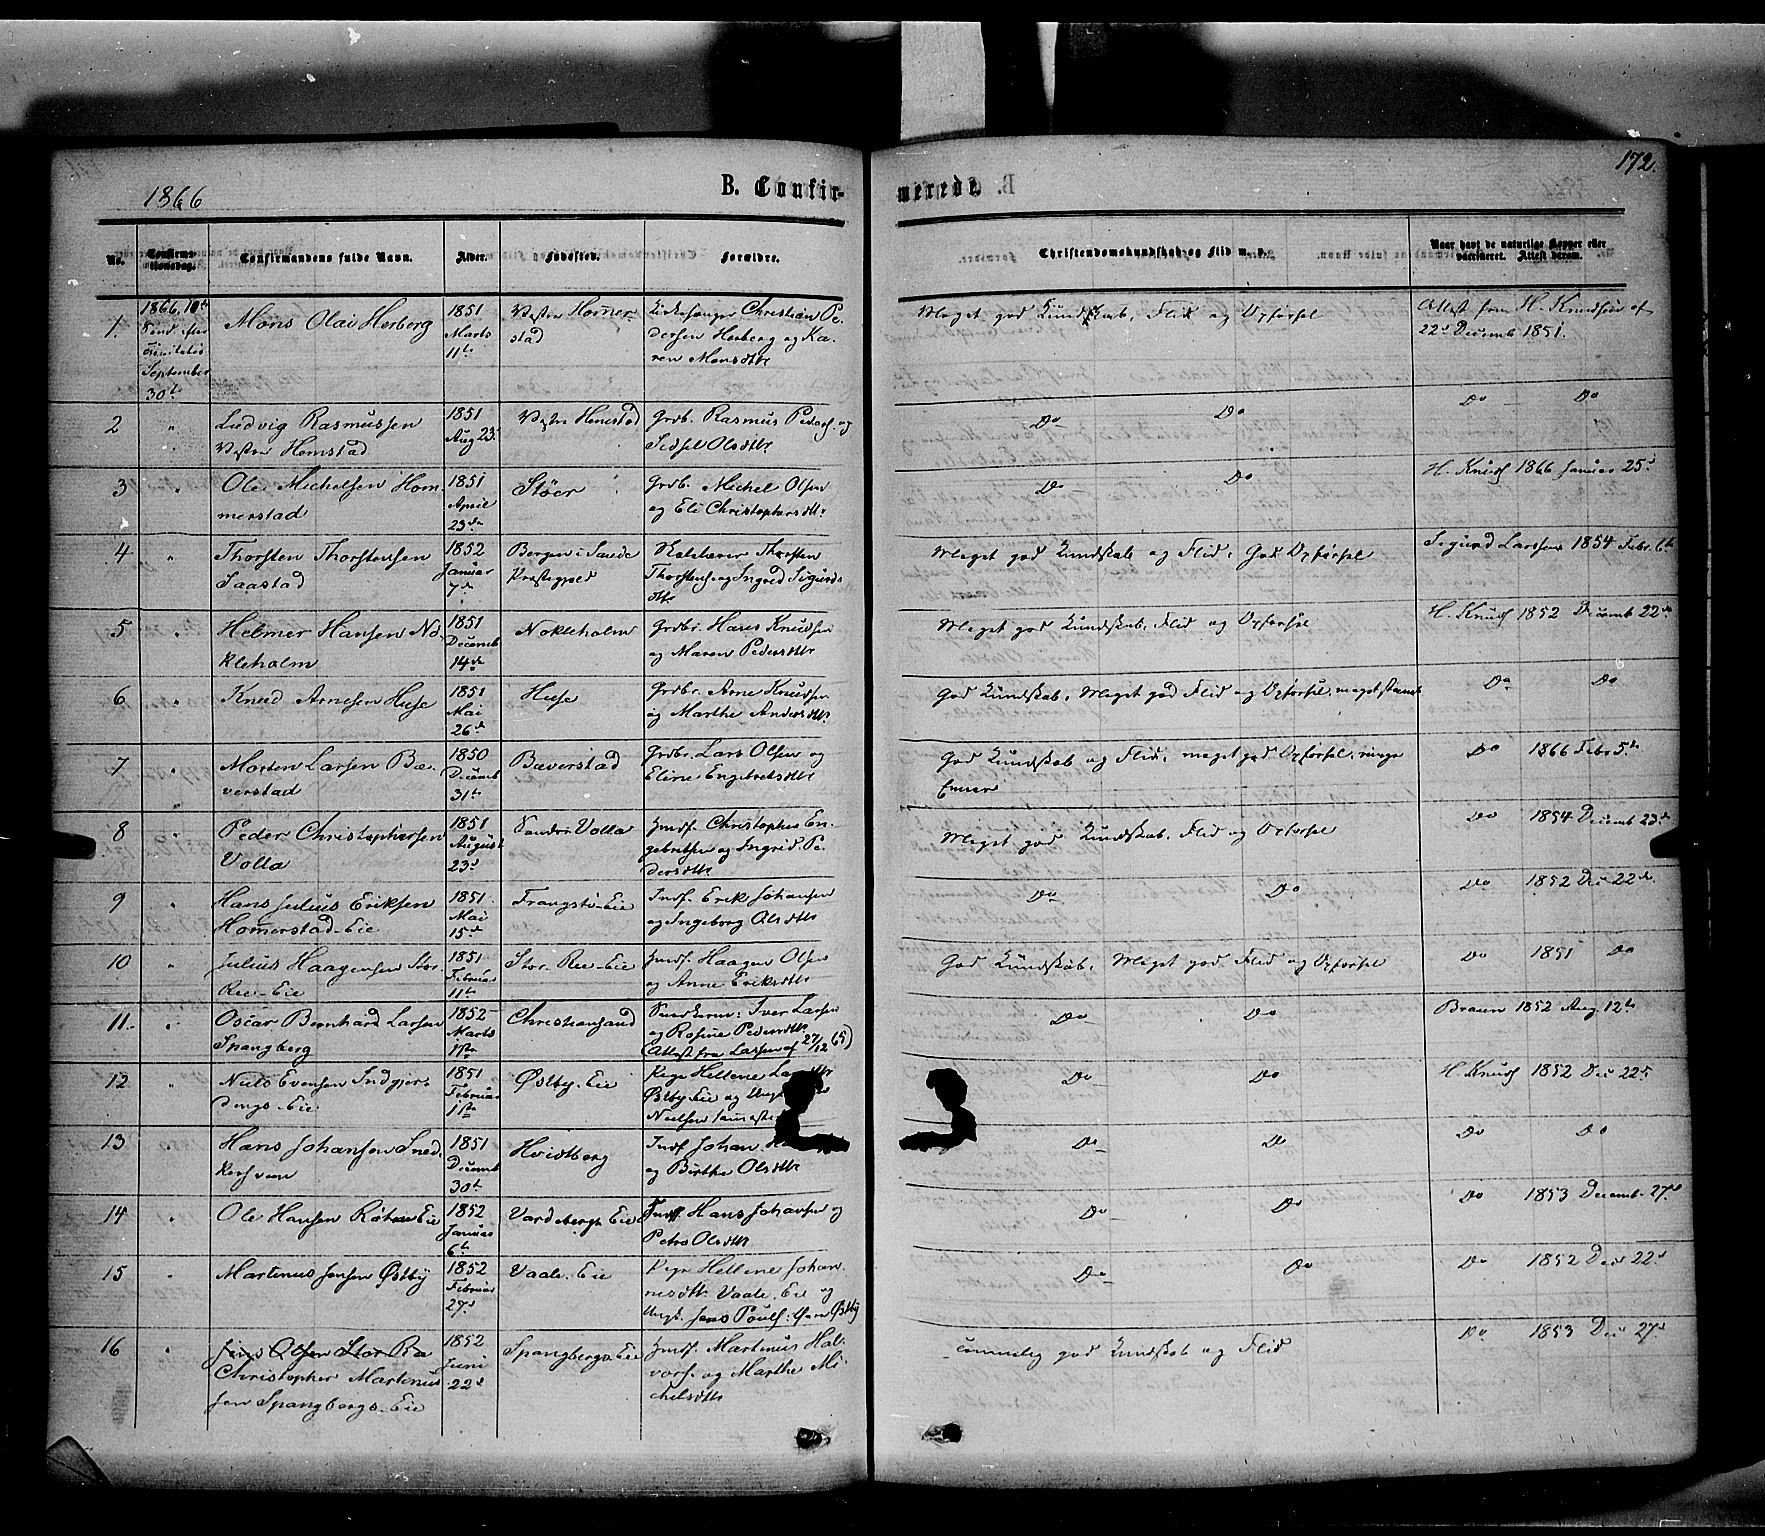 1866
B. Confir-
merede.
172.
No.
Confirma-
tionsdag.
Confirmandens fulde Navn.
Alder.
Fødested.
Forældre.
Christendomskundskab og Flid m. v.
Naar havt de naturlige Kopper eller
vaccineret. Attest derom.
1.
1866, 10de
Sønd. efter
Trinitatis
September
30te
Mons Olai Herberg
1851
Marts
11te
Vestre Homer-
stad
Kirkesanger Christian Pe-
dersen Herberg og Ka-
ren Monsdtr
Meget god Kundskab, Flid og Opførsel
Attest fra H. Knudsen af
22d Decemb 1851.
2
"
Ludvig Rasmussen
Vestre Homstad
1851
Aug 23d
Vestre Homstad
Grdb. Rasmus Peders. og
Sidsel Olsdtr
Do Do
Do Do
3
"
Ole Michelsen Hom-
merstad
1851
April
23de
Støer
Grdb. Michel Olsen
og Eli Christophersdtr
Do Do
H. Knuds 1866 Januar 25d
4
"
Thorsten Thorstensen
Saastad
1852
Januar
7de
Bergen i Sande
Præstegjeld
Skolelærer Thorsten
Thorstens. og Ingred Sigurds
dtr
Meget god Kundskab og Flid, God Opførsel
Sigurd Larssen 1854 Febr. 6te
5
"
Helmer Hansen No-
kleholm
1851
Decemb
14de
Nokleholm
Grdbr. Hans Knudsen
og Maren Pedersdtr
Meget god Kundskab, Flid og Opførsel
H. Knuds 1852 Decemb 22de
6
"
Knud Arnesen Huse
1851
Mai
26de
Huse
Grdbr. Arne Knudsen
og Marthe Andersdtr
God Kundskab, Meget god Flid og Opførsel,
Do Do
7
"
Morten Larsen Bæ-
verstad
1850
Decemb
31te
Bæverstad
Grdbr. Lars Olsen og
Eline Engebretsdtr
God Kundskab og Flid, meget god Opførsel, ringe
Evner
Do 1866 Febr 5te
8
"
Peder Christophersen
Volla
1851
August
23d
Søndre Volla
Indf. Christopher En-
gebretsen og Ingrid Pe-
dersdtr
Meget god Kundskab, Flid og Opførsel
Do 1854 Decemb 23de
9
"
Hans Julius Eriksen
Homerstad-Eie
1851
Mai
15de
Frangstø-Eie
Indf. Erik Johansen
og Ingeborg Olsdtr
Do Do
Do 1852 Dec 22de
10
"
Julius Haagensen Stor-
Ree-Eie
1851
Februar
11te
Stor-Ree-Eie
Indf. Haagen Olsen
og Anne Eriksdtr
God Kundskab, Meget god Flid og Opførsel
Do 1851 Do
11
"
Oscar Bernhard Larsen
Spangberg
1852
Marts
1ste
Christiansand
Iver Larsen
og Rosine Pedersdtr
(Attest fra Larsen af 27/12 65)
Do Do
Braun 1852 Aug. 12te
12
"
Niels Evensen Indgjer-
dings-Eie
1851
Februar
1ste
Østby-Eie
Pige Hellene
Østby Eie og Ungk
Neelsen
Do Do
H. Knuds 1852 Dec 22d
13
"
Hans Johansen Sned-
kersveen
1851
Decemb
30te
Hvidtberg
Indf. Johan
og Birthe Olsdtr
Do Do
Do Do
14
"
Ole Hansen Røhne Eie
1852
Januar
6te
Vardebergs Eie
Indf. Hans Johansen og
Petro Olsdtr
Do Do
Do 1853 Decemb. 27d
15
"
Martinus Jensen Østby
1852
Februar
27d
Vaale-Eie
Pige Hellene Johan-
nesdtr. Vaale-Eie og
Ungk. Jens Pouls. Østby
Do Do
Do 1852 Dec 22d
16
"
Jens Olsen Stor-Ræ
Christopher Martinus-
sen Spangbergs-Eie
1852
Juni
22d
Spangbergs-Eie
Indf. Martinus Hal-
vors. og Marthe Mi-
chelsdtr
temmelig god Kundskab og Flid
Do 1853 Dec 27d